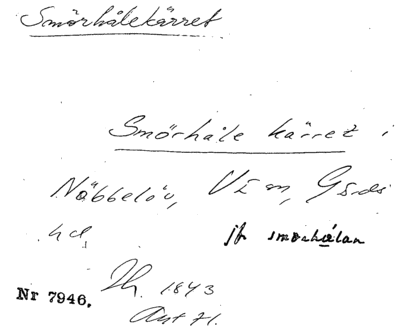 Smörhålekärret
Smörhåle kärret i
Näbbelöv, V I m, Gärds
hd,
jfr smörhålan
Nr 7946. Th. 1843
Akt 71.